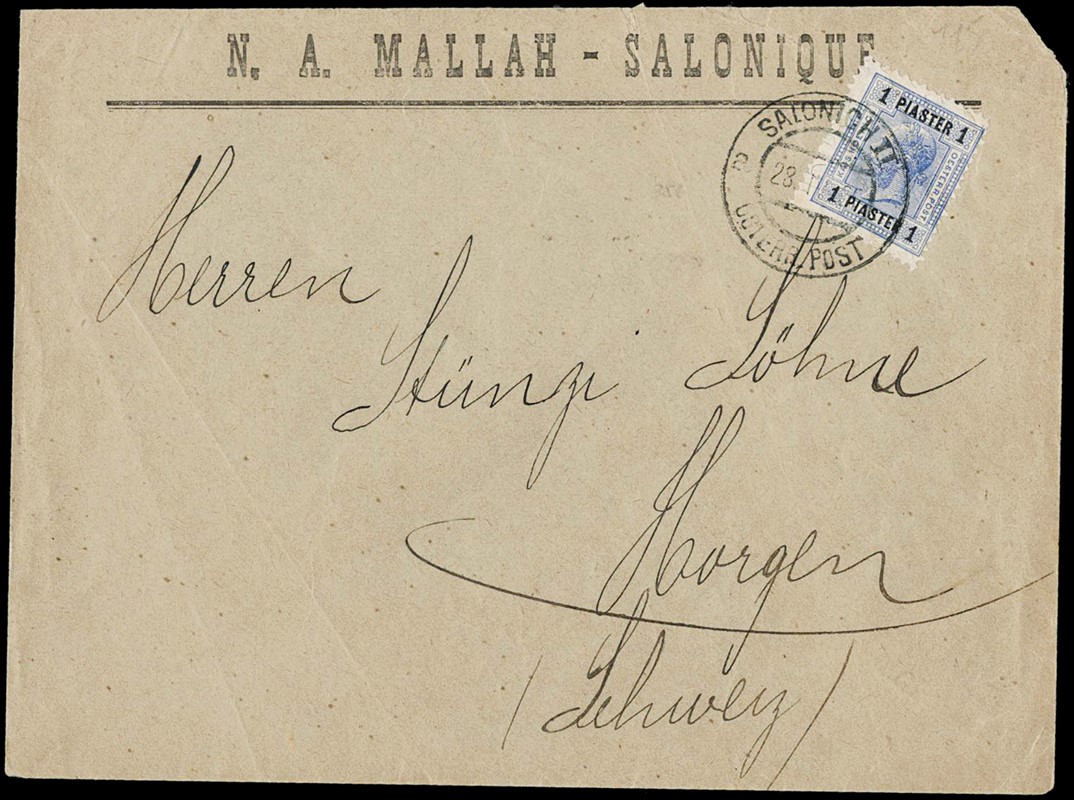 N. A. MALLAH - SALONIQUE
1 PIASTER 1
OESTERR. POST
1 PIASTER 1
SALONICH II
28.
OSTERR. POST
Herren
Stünzi Söhne
Horgen
(Schweiz)